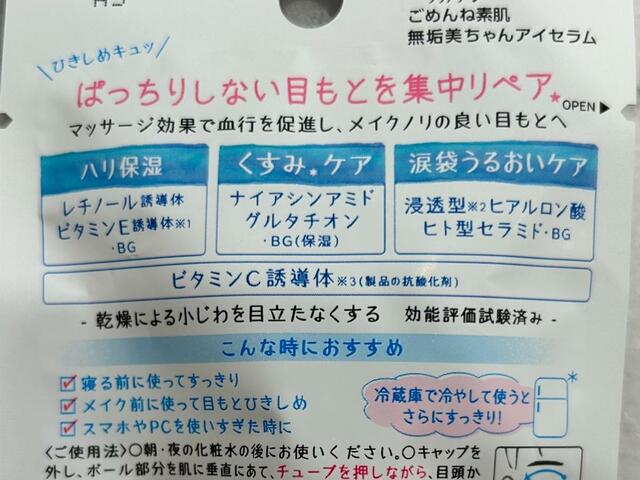 ごめんね素肌
無垢美ちゃんアイセラム
ひきしめキュッ
ぱっちりしない目もとを集中リペア
OPEN▶
マッサージ効果で血行を促進し、メイクノリの良い目もとへ
ハリ保湿
レチノール誘導体
ビタミンE誘導体※1
・BG
くすみ*ケア
ナイアシンアミド
グルタチオン
・BG(保湿)
涙袋うるおいケア
浸透型※2ヒアルロン酸
ヒト型セラミド・BG
ビタミンC誘導体※3(製品の抗酸化剤)
- 乾燥による小じわを目立たなくする 効能評価試験済み -
こんな時におすすめ
☑寝る前に使ってすっきり
☑メイク前に使って目もとひきしめ
☑スマホやPCを使いすぎた時に
冷蔵庫で冷やして使うと
さらにすっきり!
*
〈ご使用法〉〇朝・夜の化粧水の後にお使いください。〇キャップを
外し、ボール部分を肌に垂直にあて、チューブを押しながら、目頭か